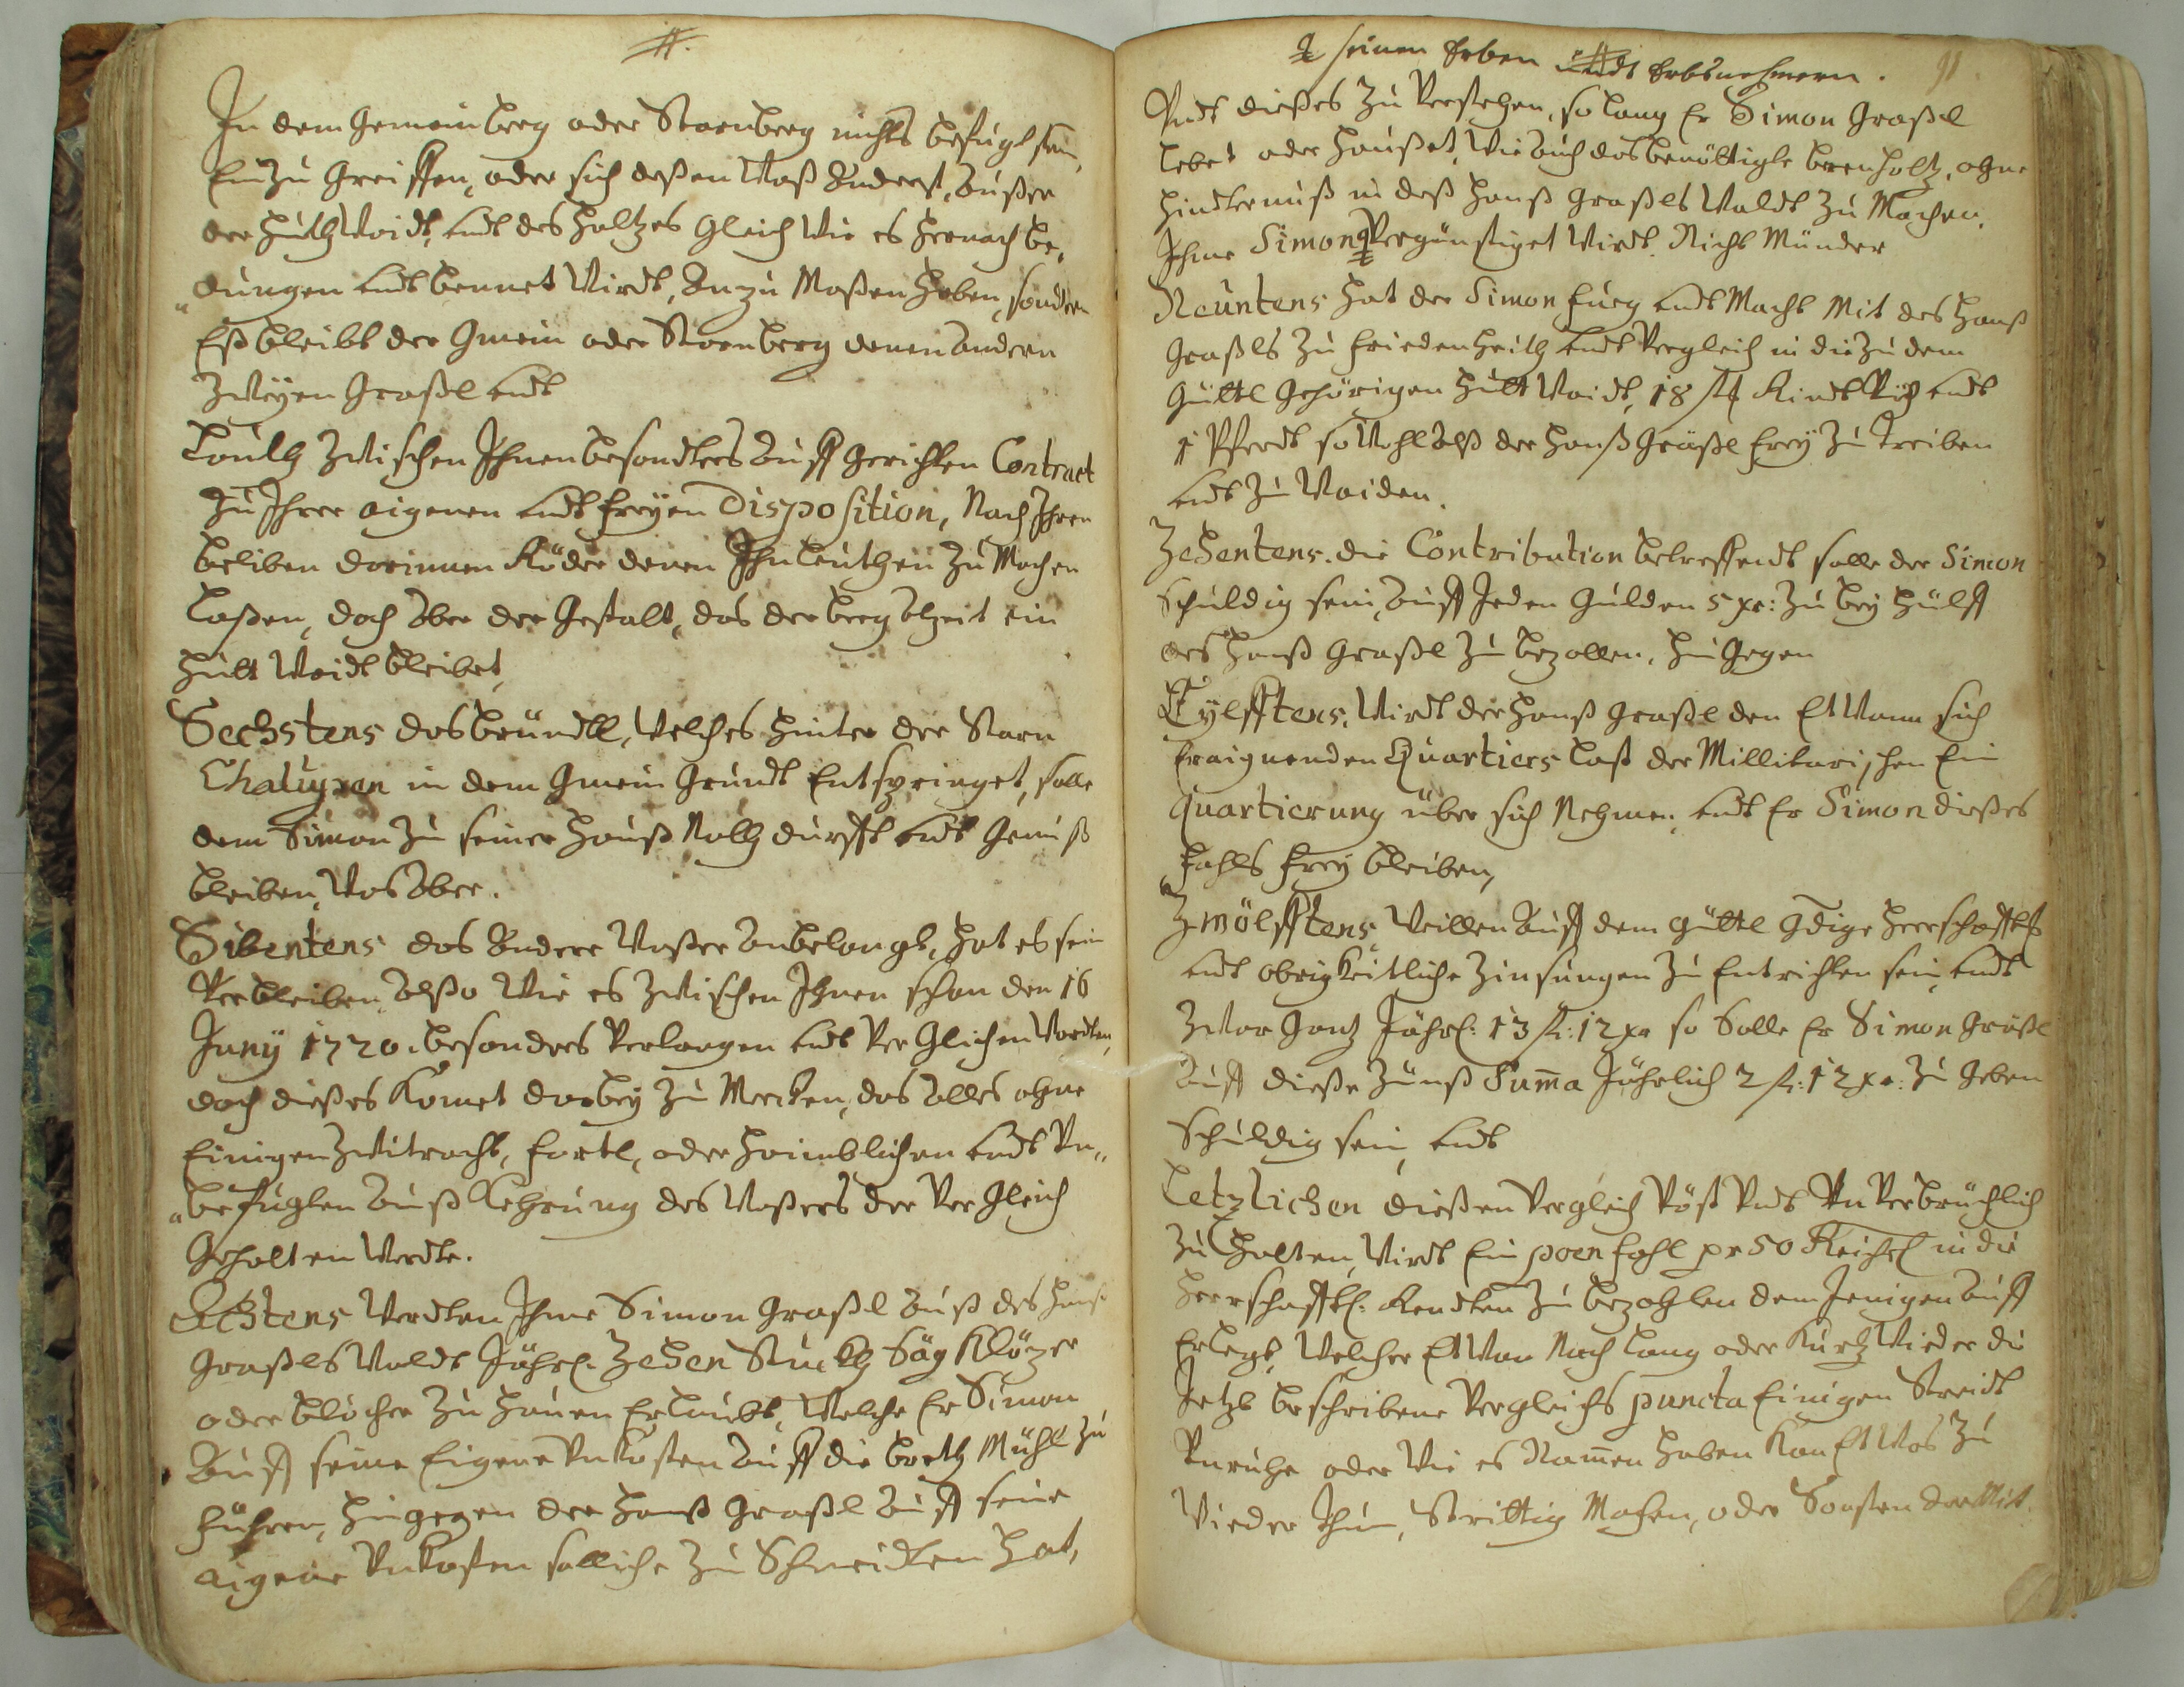 #.
In dem Gemein berg oder Starnberg nichts befugt sein,
Einzu Greiffen, oder sich deßen Waß anderst, außer
der Hueth Waidt, undt des Holtzes Gleich Wie es hernach be,
„dungen undt benent Wirdt, anzu Maßen haben, sondern
Eß bleibt der Gmein oder Starnberg denen andern
Zweyen Graßl undt
Lauth Zwischen Ihnen besonders auff gerichten Contract
Zu Ihrer aigenen undt freyen Disposition, Nach Ihren
beliben darinnen Röder denen Ihnleuthen zu Machen
Laßen, doch aber der Gestalt, das der berg alzeit ein
Hutt Waidt bleibet,
Sechstens das bründtl, Welches hinter der Starn
Chalupen in dem Gmein Grundt Entspringet, solle
dem Simon zu seiner Hauß Noth durfft undt Genuß
bleiben, Was aber.
Sibentens das andere Waßer anbelangt, hat es sein
Verbleiben, alßo Wie es Zwischen Ihnen schon den 16
Juny 1720. besonders Verlangen undt Ver Glichen Worden,
doch dießes Komet darbey zu Mercken, das alles ohne
Einigen Zwitracht, fortl, oder haimblichen undt Un„
„befugten auß Kehrung des Waßers der Ver Gleich
Gehalten Werdte.
Achtens Werdten Ihme Simon Graßl auß des Hanß
Graßls Waldt Jährl. Zehen Stuckh Säg Klözer
oder blöcher zu hauen Erlaubt, Welche Er Simon
auff seine Eigene Unkosten auff die breth Mühl zu
führen, hingegen der Hanß Graßl auff seine
aigene Unkosten solliche zu Schneidten hat,
seinen Erben undt Erbsnehmern. 91.
Undt dießes zu Verstehen, so lang Er Simon Graßl
Lebet oder haußet, Wie auch das benöttigte brenholtz, ohne
hindternuß in deß Hanß Graßls Waldt zu Machen,
Ihme Simon Vergünstiget Wirdt. Nicht Münder
Neuntens hat der Simon fueg undt Macht Mit des Hanß
Graßls zu friedenheith undt Vergleich in die zu dem
Güttl Gehörigen Hutt Waidt, 18 stk Rindt Vich undt
1 Pferdt so Wohl alß der Hanß Gräßl frey zu Treiben
undt zu Waiden.
Zehentens. die Contribution betreffendt solle der Simon
Schuldig sein, auff Jeden Gulden 5 xr: zu bey hülff
des Hanß Graßl zu bezallen, hingegen
Eylfftens, Wirdt der Hanß Graßl den Etwann sich
Eraignenden Quartiers Last der Millitarischen Ein
quartierung über sich Nehmen, undt Er Simon dießes
„fahls frey bleiben,
Zwölfftens Weillen auff dem Güttl Gdige Herrschafftl
undt obrigkeitliche Zinsungen zu Entrichten sein, undt
Zwar Gantz Jährl: 13 fl: 12 xr so Solle Er Simon Gräßl
auff dieße Zünß Suma Jährlich 2 fl: 12 xr: zu Geben
Schuldig sein, undt
Letzlichen dießen Vergleich Vöst Undt Un Verbrüchlich
zu halten, Wirdt Ein poenfahl pr 50 Reichsl in die
Herrschafftl: Rendten zu bezahlen dem Jenigen auff
Erlegt, Welcher Etwan Nach Lang oder Kurtz Wieder die
Jetzt beschribene Vergleichs puncta Einigen Streidt
Unruhe oder Wie es Namen haben Kan Etwas zu
Wieder Thun, Strittig Machen, oder Sonsten darMit.